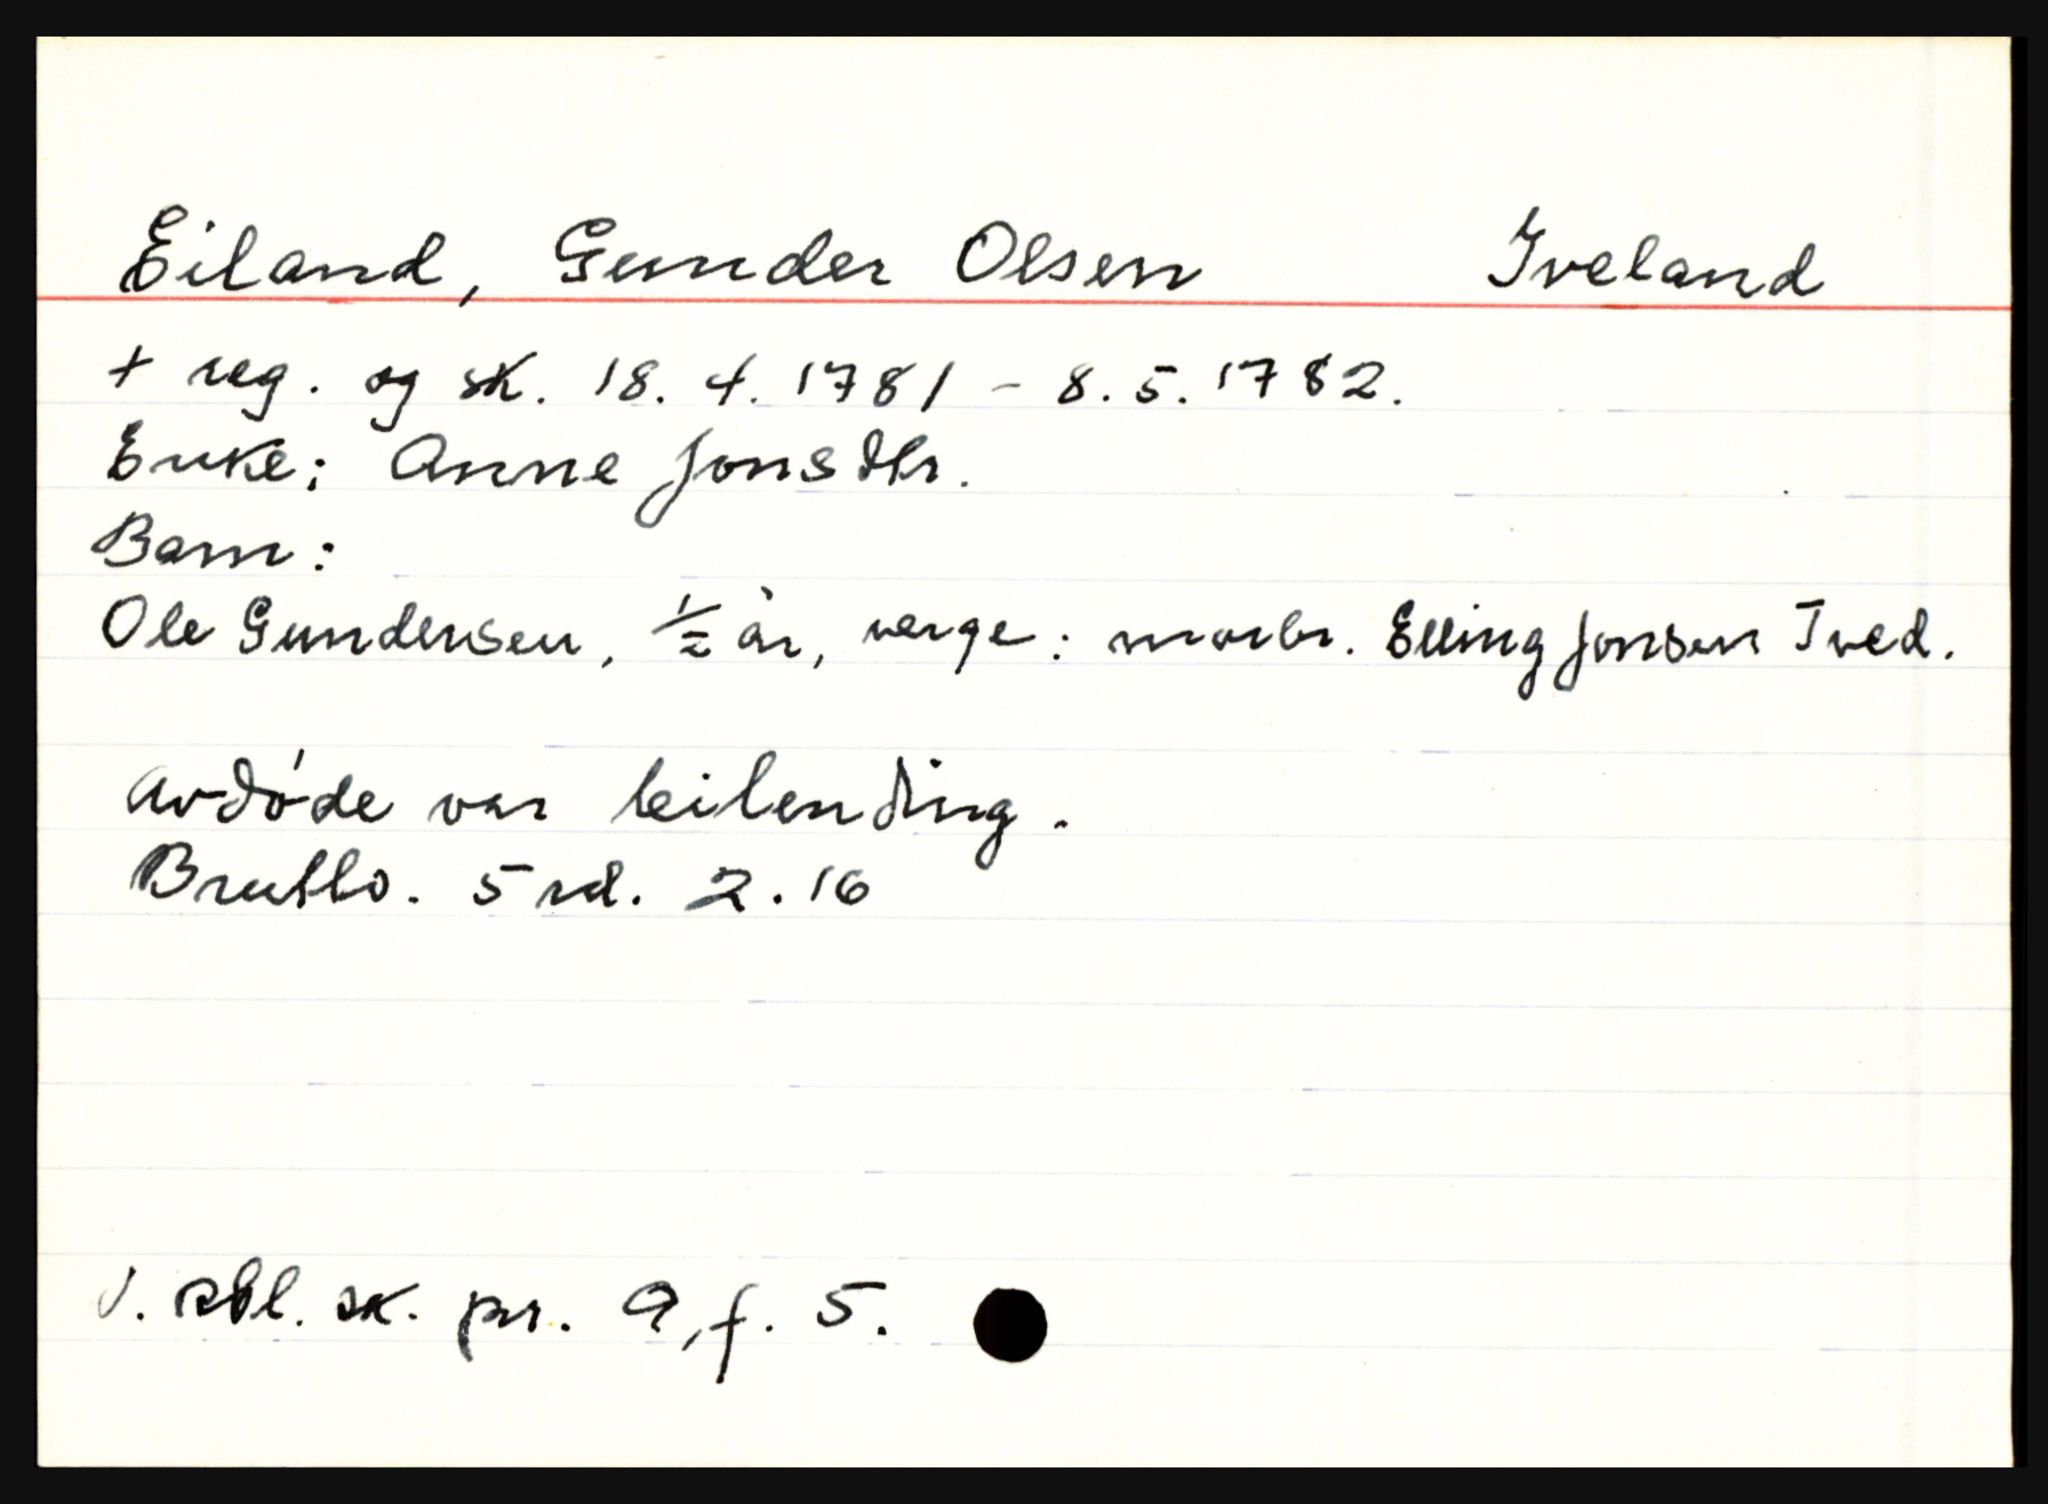 Eiland, Gunder Olsen Iveland
+ reg. og sk. 18.4.1781 - 8.5.1782.
Enke: Anne Jonsdtr.
Barn:
Ole Gundersen, 1/2 år, verge: morbr. Elling Jonsen Tved.
Avdøde var leilending.
Brutto. 5 rd. 2.16
V. Rbl. sk. pr. 9, f. 5.